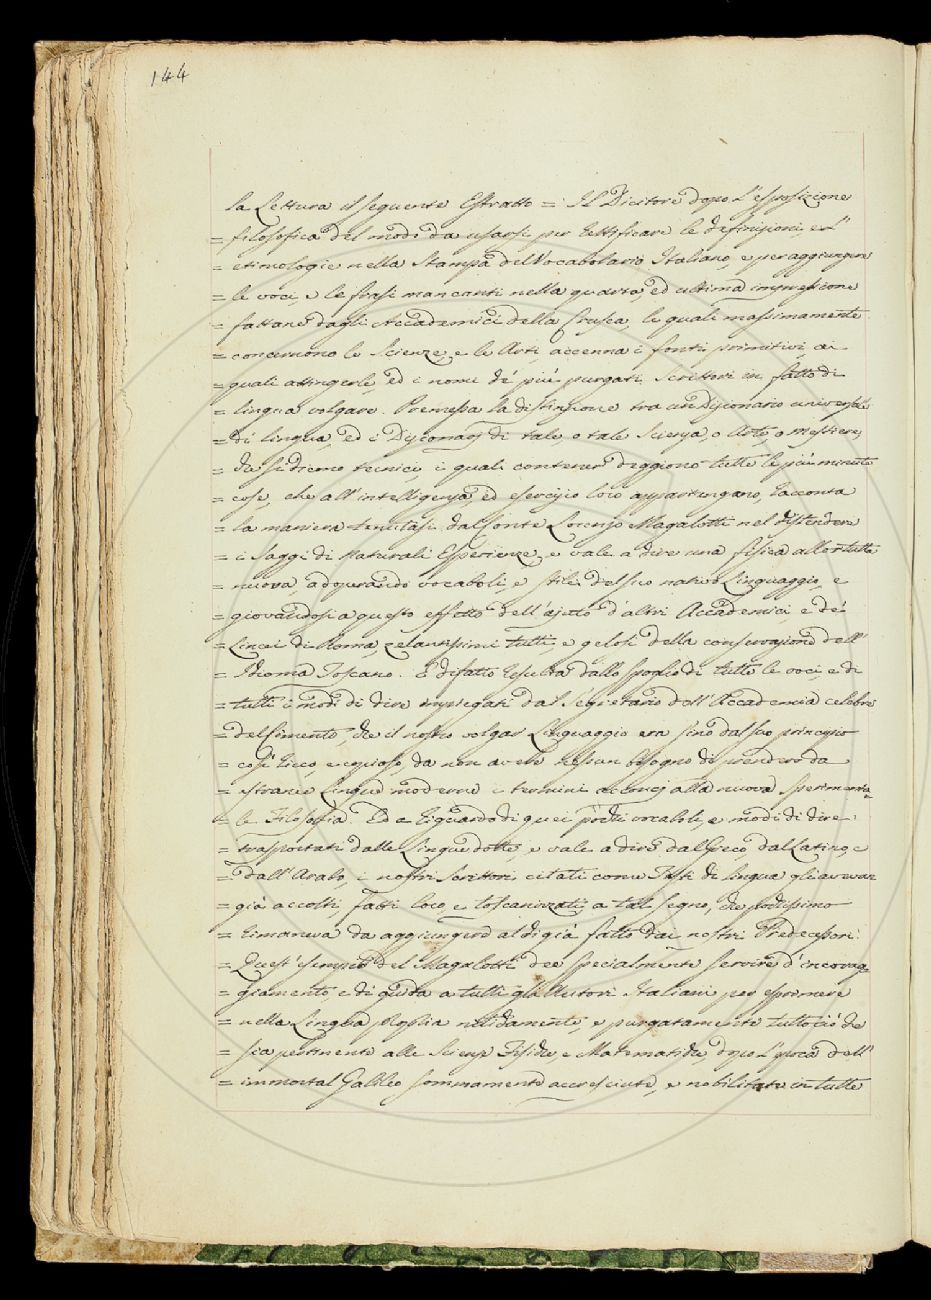 144
la Lettura il seguente Estratto = Il Dicitore dopo l'esposizione
= filosofica del modo da usarsi per rettificare le definizioni, e l'
= etimologie nella Stampa del Vocabolario Italiano, e per aggiungere
= le voci e le frasi mancanti nella quarta, ed ultima impressione
= fattane dagli Accademici della Crusca, le quali massimamente
= concernono le Scienze, e le Arti accenna i fonti primitivi, ai
= quali attingerle, ed i nomi de' più purgati Scrittori in fatto di
= lingua volgare. Premessa la distinzione tra un Dizionario universale
= di lingua, ed i Dizionarj di tale, o tale Scienza, o Arte, o Mestiere,
= che si dicono tecnici, i quali contener deggiono tutte le più minute
= cose, che all'intelligenza, ed esercizio loro appartengano, racconta
= la maniera tenutasi dal Conte Lorenzo Magalotti nel distendere
= i Saggi di Naturali Esperienze, e vale a dire una fisica affatto
= nuova, adoperando vocaboli, e stile del suo nativo Linguaggio, e
= giovandosi a questo effetto dell'ajuto d'altri Accademici, e de'
= Lincei di Roma, zelantissimi tutti, e gelosi della conservazione dell'
= Idioma Toscano. E difatto resulta dallo spoglio di tutte le voci, e di
= tutti i modi di dire impiegati dal Segretario dell'Accademia celebre
= del Cimento, che il nostro volgar Linguaggio era sino dal suo principio
= così ricco, e copioso, da non avere nessun bisogno di prendere da
= straniere Lingue moderne i termini acconcj alla nuova Sperimenta-
= le Filosofia. Ed a riguardo di quei pochi vocaboli, e modi di dire
= trasportati dalle Lingue dotte, e vale a dire dal Greco, dal Latino, e
= dall'Arabo, i nostri Scrittori citati come Testi di lingua gli avevan
= già accolti, fatti loro, e toscanizzati, a tal segno, che pochissimo
= rimaneva da aggiungere al di già fatto dai nostri Predecessori.
= Quest'esempio del Magalotti dee specialmente servire d'incorag-
= giamento, e di guida a tutti gli Autori Italiani per esprimere
= nella Lingua propria nitidamente, e purgatamente tutto ciò che
= sia pertinente alle Scienze Fisiche, e Matematiche, dopo l'epoca dell'
= immortal Galileo sommamente accresciute, e nobilitate in tutte